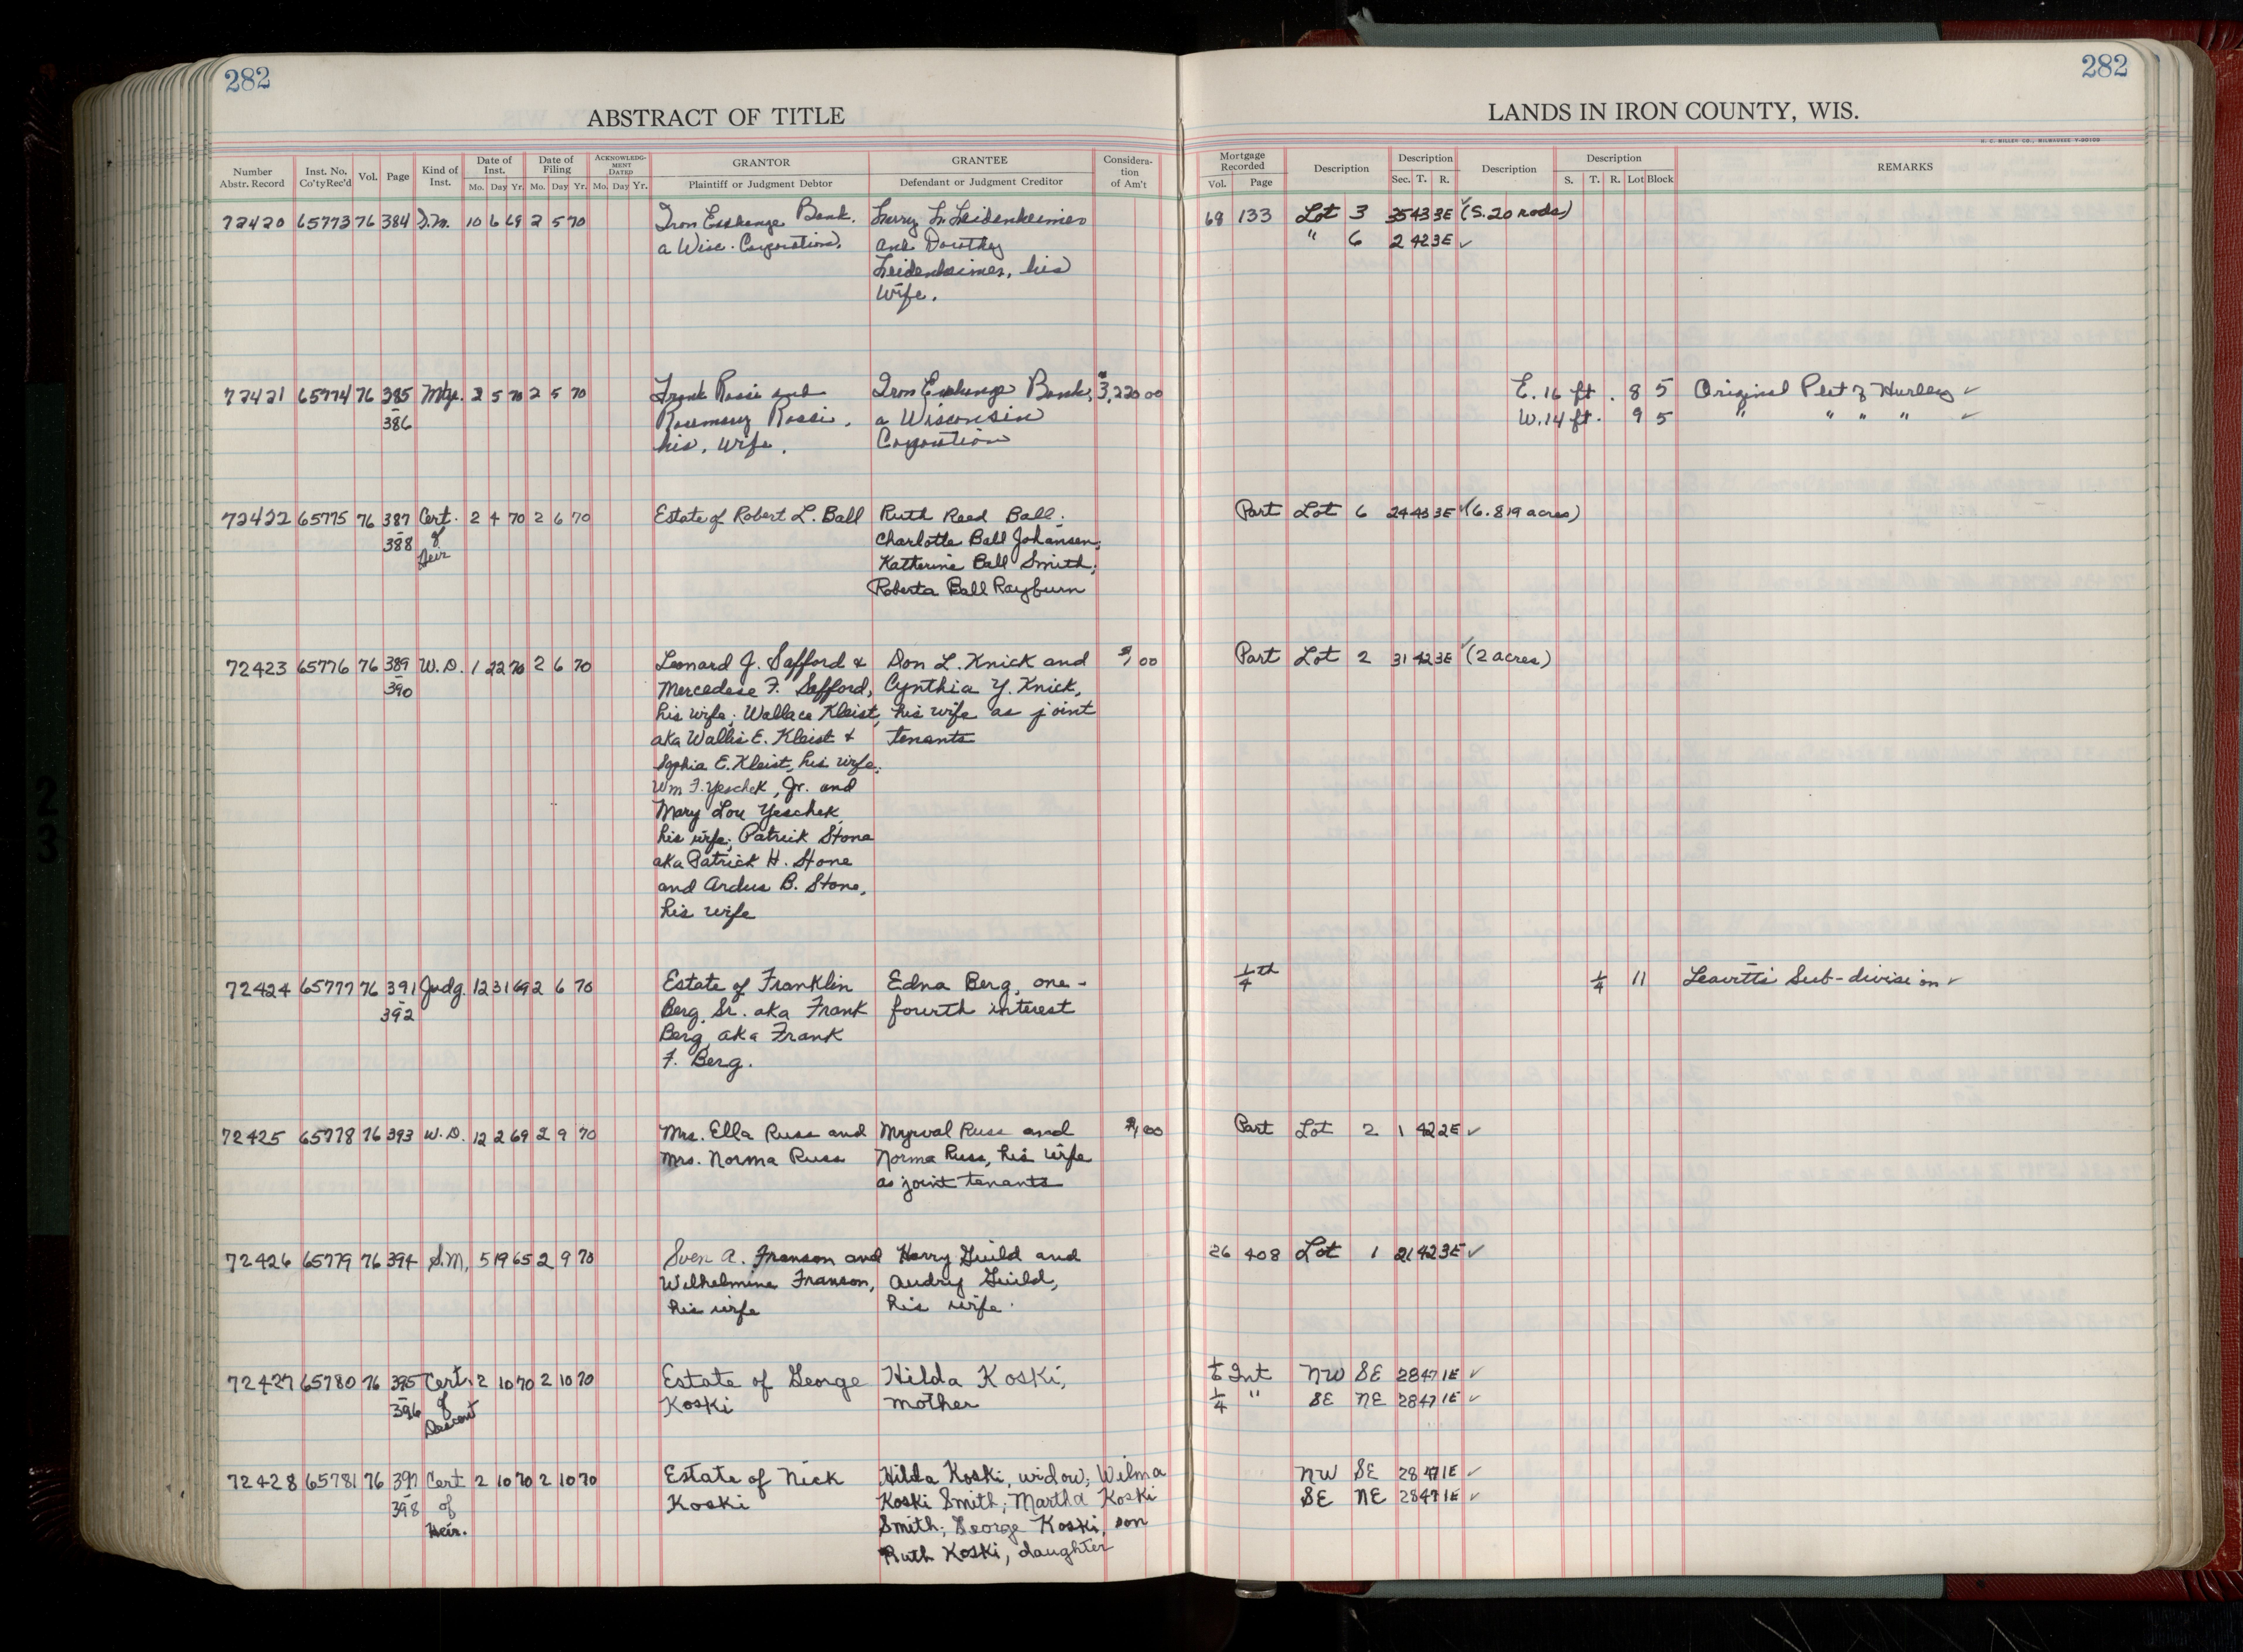 282
282
ABSTRACT OF TITLE
LANDS IN IRON COUNTY, WIS.
H. C. MILLER CO., MILWAUKEE
Number Abstr. Record
Inst. No. Co'tyRec'd
Vol.
Page
Kind of Inst.
Date of Inst. Mo. Day Yr.
Date of Filing Mo. Day Yr.
ACKNOWLEDGMENT DATED Mo. Day Yr.
GRANTOR Plaintiff or Judgment Debtor
GRANTEE Defendant or Judgment Creditor
Consideration of Am't
Mortgage Recorded Vol. Page
Description
Description Sec. T. R.
Description
Description S. T. R. Lot Block
REMARKS
72420 65773 76 384 S.M. 10 6 69 2 5 70 Iron Exchange Bank, Larry L. Leidenheimer 68 133 Lot 3 35 43 3E (S. 20 rods)
a Wisc. Corporation, and Dorothy " 6 2 42 3E
Leidenheimer, his
wife.
72421 65774 76 385 Mtg. 2 5 70 2 5 70 Frank Rossi and Iron Exchange Bank, $3,220 00 E. 16 ft. 8 5 Original Plat of Hurley
386 Rosemary Rossi, a Wisconsin W. 14 ft. 9 5 " " " "
his wife. Corporation
72422 65775 76 387 Cert. 2 4 70 2 6 70 Estate of Robert L. Ball Ruth Reed Ball; Part Lot 6 24 43 3E (6.819 acres)
388 of Charlotte Ball Johansen;
Heir Katherine Ball Smith;
Roberta Ball Rayburn
72423 65776 76 389 W.D. 1 22 70 2 6 70 Leonard J. Safford & Don L. Knick and $1 00 Part Lot 2 31 42 3E (2 acres)
390 Mercedese F. Safford, Cynthia Y. Knick,
his wife; Wallace Kleist, his wife as joint
aka Wallis E. Kleist & tenants
Sophia E. Kleist, his wife;
Wm F. Yeschek, Jr. and
Mary Lou Yeschek,
his wife; Patrick Stone
aka Patrick H. Stone
and Ardus B. Stone,
his wife
72424 65777 76 391 Judg. 12 31 69 2 6 70 Estate of Franklin Edna Berg, one- 1/4 th 1/4 11 Leavitts Sub-division
392 Berg, Sr. aka Frank fourth interest
Berg aka Frank
F. Berg.
72425 65778 76 393 W.D. 12 2 69 2 9 70 Mrs. Ella Russ and Myrval Russ and $1 00 Part Lot 2 1 42 2E
Mrs. Norma Russ Norma Russ, his wife
as joint tenants
72426 65779 76 394 S.M. 5 19 65 2 9 70 Sven A. Franson and Harry Guild and 26 408 Lot 1 21 42 3E
Wilhelmina Franson, Audry Guild,
his wife his wife.
72427 65780 76 395 Cert. 2 10 70 2 10 70 Estate of George Hilda Koski, Int NW SE 28 47 1E
396 of Koski mother 1/4 " SE NE 28 47 1E
Descent
72428 65781 76 397 Cert 2 10 70 2 10 70 Estate of Nick Hilda Koski, widow; Wilma NW SE 28 47 1E
398 of Koski Koski Smith; Martha Koski SE NE 28 47 1E
Heir. Smith; George Koski, son
Ruth Koski, daughter